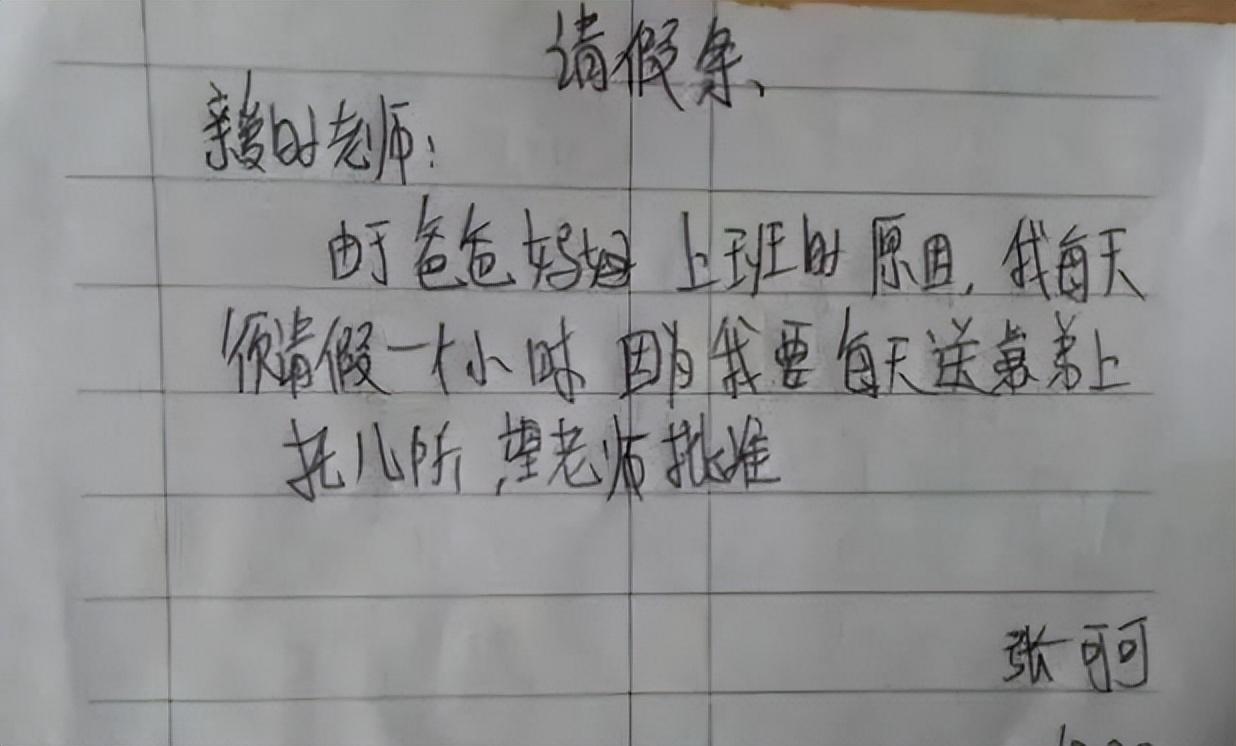 请假条
亲爱的老师:
由于爸爸妈妈上班的原因,我每天
须请假一个小时因为我要每天送弟弟上
托儿所,望老师批准
张可可